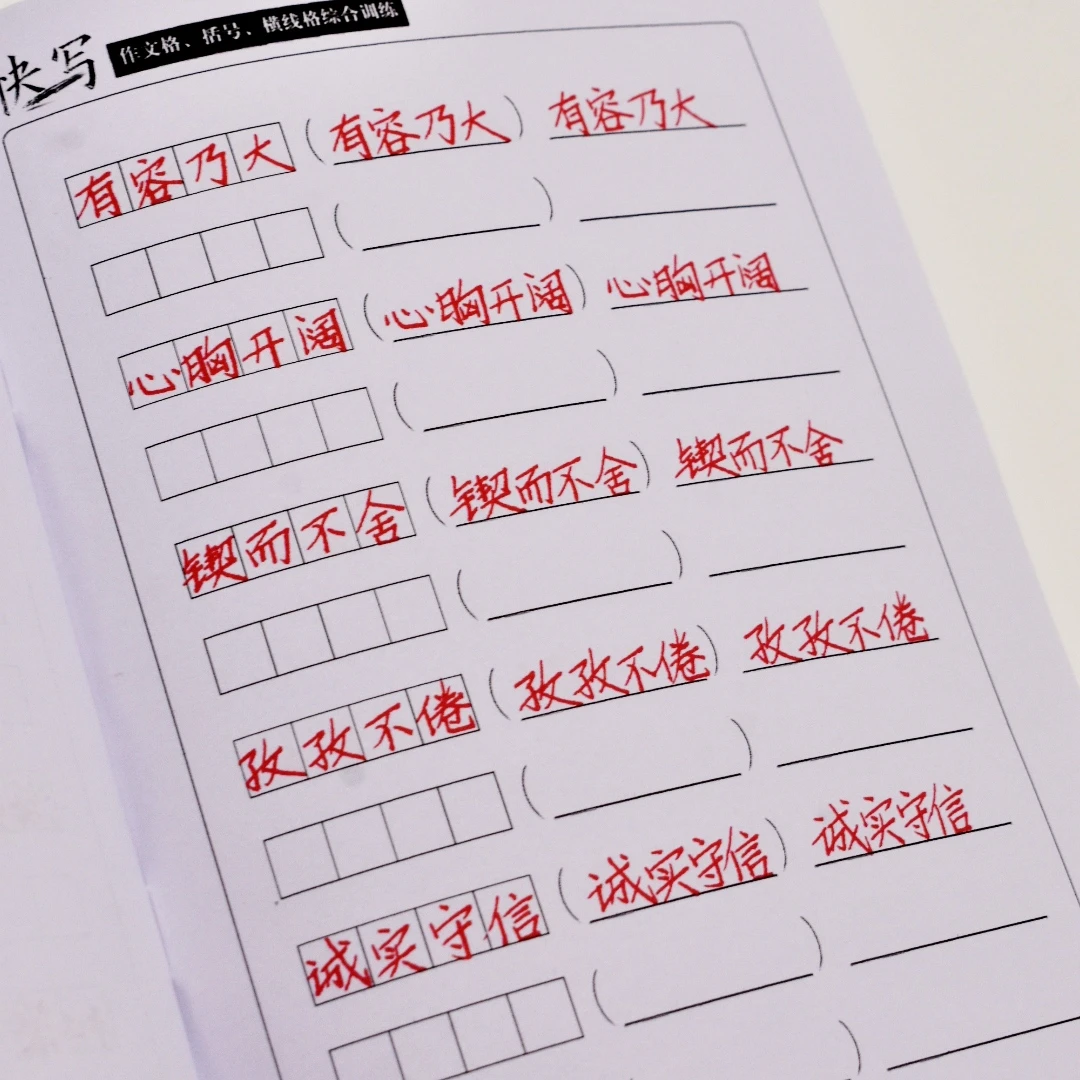 快写 作文格、括号、横线格综合训练
有容乃大 (有容乃大) 有容乃大
心胸开阔 (心胸开阔) 心胸开阔
锲而不舍 (锲而不舍) 锲而不舍
孜孜不倦 (孜孜不倦) 孜孜不倦
诚实守信 (诚实守信) 诚实守信